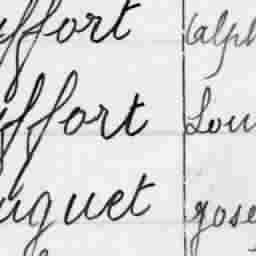 ffort Calph
ffort Lou
uguet Jose